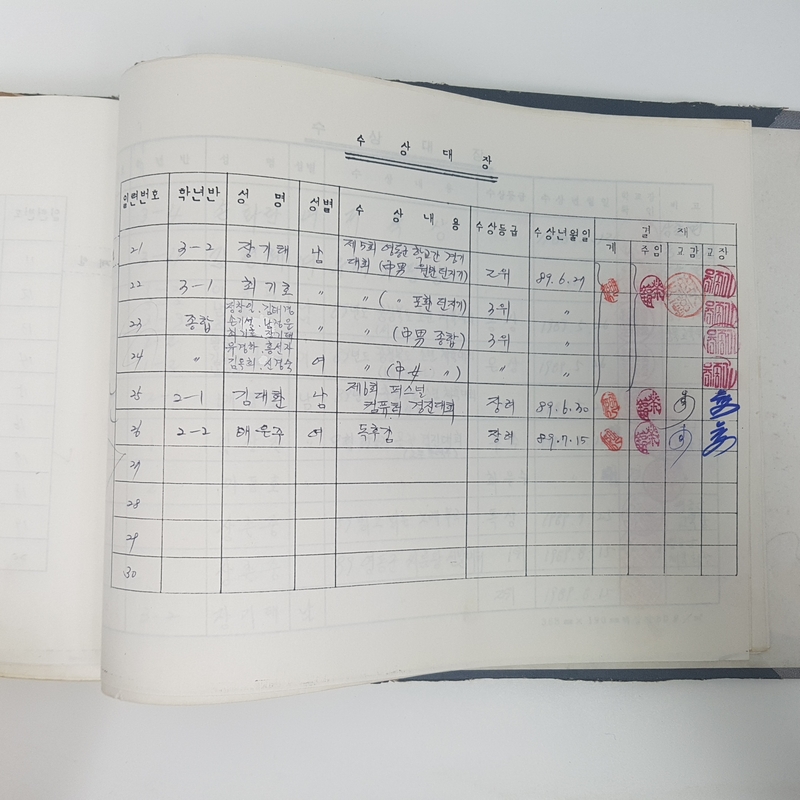 수 상 대 장
일련번호 학년반 성 명 성별 수 상 내 용 수상등급 수상년월일 결 재
계 주임 교감 교장
21 3-2 장기태 남 제5회 영동군 학교간 경기
대회 (中男 원반던지기) 2위 89.6.29
22 3-1 최기호 〃 〃 ( 〃 포환던지기) 3위 〃
23 종합 〃 〃 (中男 종합) 3위 〃
최기호 장기태
24 〃 여 〃 (中女 〃 ) 〃 〃
김옥희. 신경숙
25 2-1 김대환 남 제6회 퍼스널
컴퓨터 경진대회 장려 89.6.30
26 2-2 태은주 여 독후감 장려 89.7.15
27
28
29
30